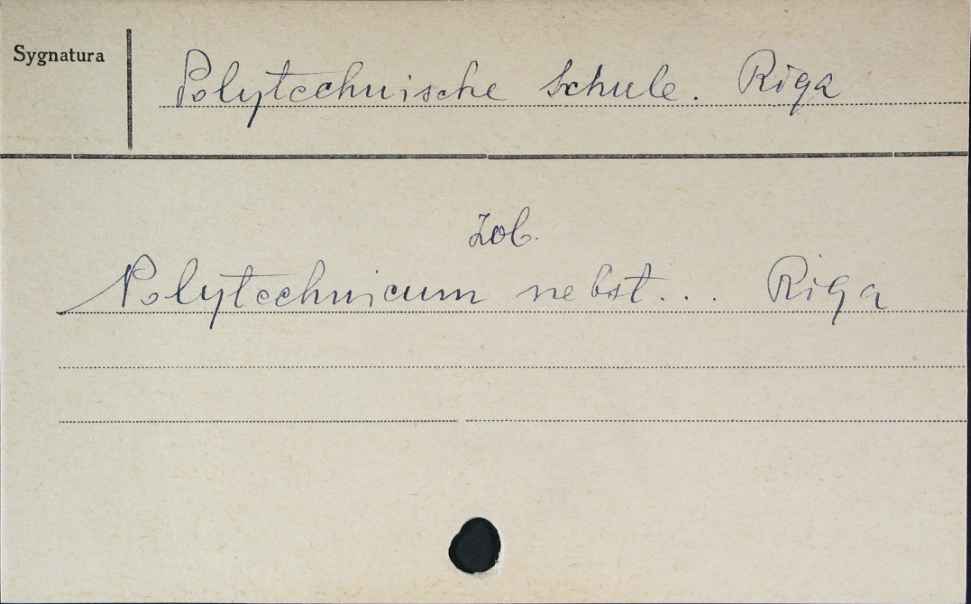 Sygnatura
Polytechnische Schule. Riga
zob.
Polytechnicum nebst... Riga